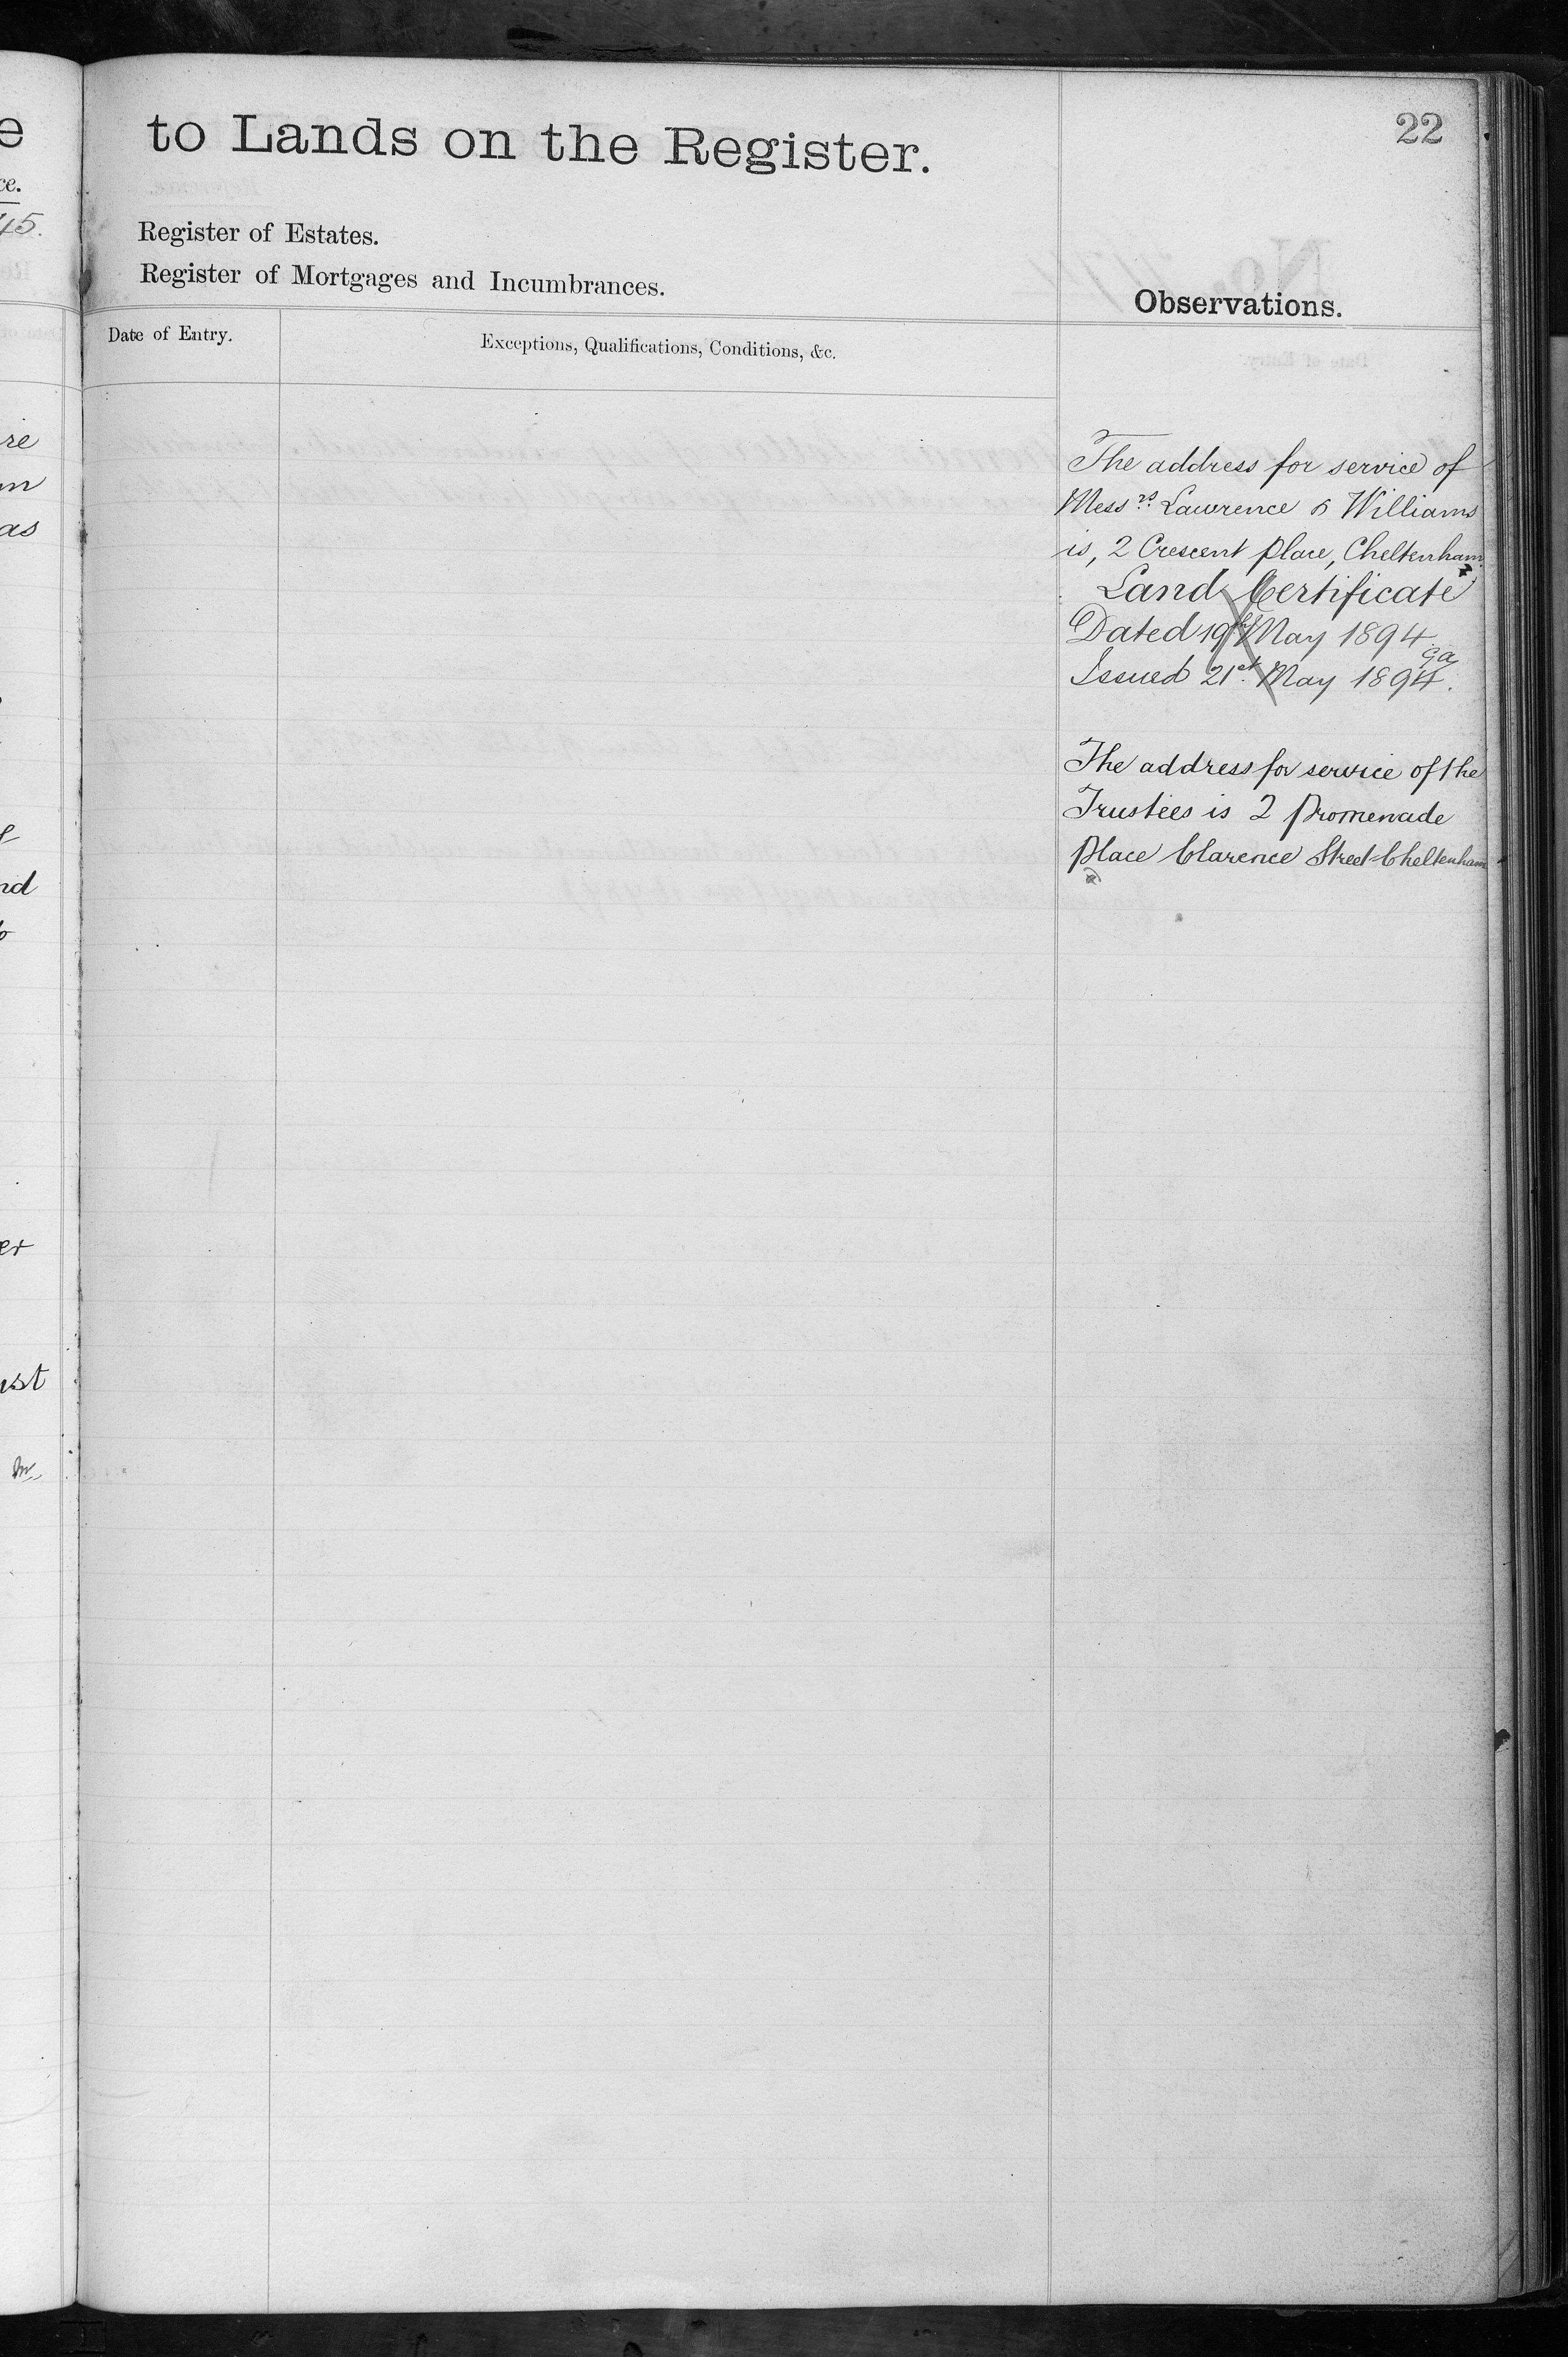 e
ce.
45.
re
m
as
nd
er
ust
to Lands on the Register.
22
Register of Estates.
Register of Mortgages and Incumbrances.
Observations.
Date of Entry.
Exceptions, Qualifications, Conditions, &c.
The address for service of
Messrs. Lawrence & Williams
is, 2 Crescent Place, Cheltenham
Land Certificate
Dated 19th May 1894
Issued 21st May 1894.
The address for service of the
Trustees is 2 Promenade
Place Clarence Street Cheltenham